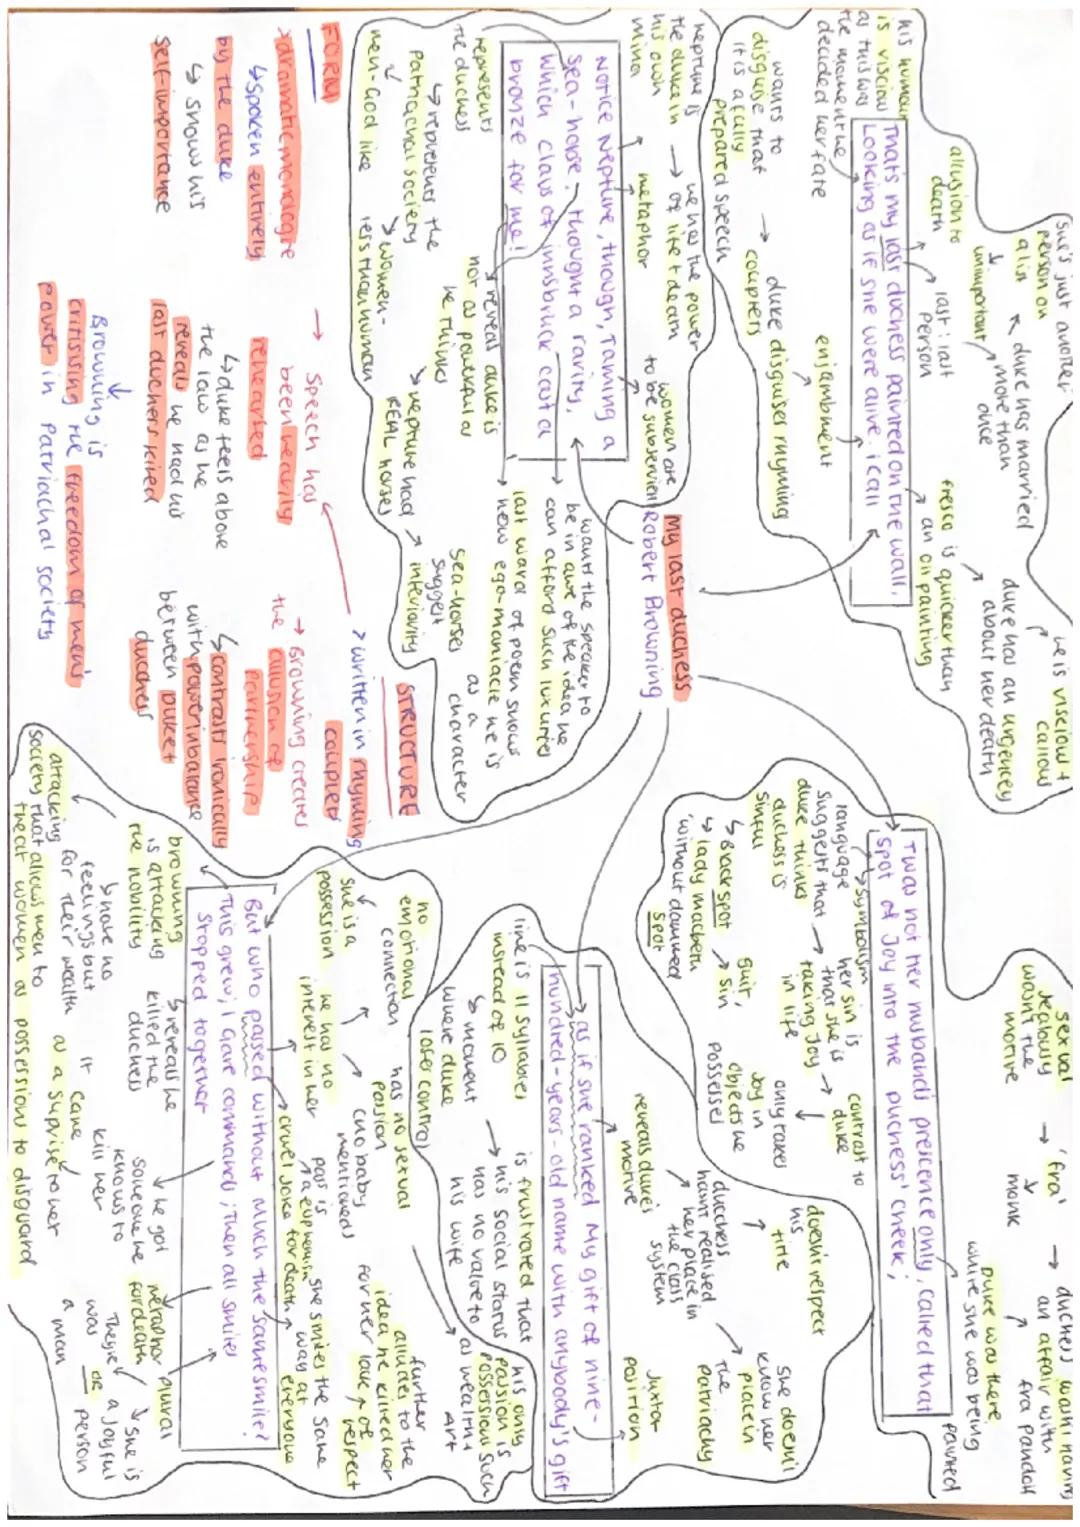 My last duchess
Robert Browning
she's just another
person on
a list
unimportant
duke has married
more than
once
last: last
person
allusion to
death
his humour
is viscious
as this was
the moment he
decided her fate
he is viscious +
callous
duke has an urgencey
about her death
fresco is quicker than
an oil painting
That's my last duchess painted on the wall,
Looking as if she were alive. i call
enjambment
duke disguises rhyming
couplets
wants to
disguise that
it is a fully
prepared speech
neptune is
the duke in
his own
mind
he has the power
of life + death
metaphor
women are
to be subservient
Notice Neptune, though, Taming a
sea-horse, thought a rarity,
which claus of innsbruck cast a
bronze for me!
represents
the duchess
represents the
patriachal society
men-God like
women-
less than human
reveals duke is
not as powerful as
he thinks
neptune had
REAL horses
inferiority
sea-horses
suggest
as a
character
wants the speaker to
be in awe of the idea he
can afford such luxuries
last word of poem shows
how ego-maniacle he is
FORM
dramatic monologue
spoken entirely
by the duke
shows his
self-importance
Speech has
been heavily
rehearsed
duke feels above
the law as he
reveals he had his
last duchess killed
Browning is
critisising the freedom of men's
power in patriachal society
STRUCTURE
written in rhyming
couplets
Browning creates
the illusion of
partnership
contrasts ironically
with power imbalance
between duke +
duchess
sexual
jealousy
wasn't the
motive
'fra'
monk
duchess wasn't having
an affair with
fra pandolf
duke was there,
while she was being
painted
Twas not her husband's prescence only, called that
spot of Joy into the Duchess' cheek;
symbolism
language
suggests that
duke thinks
duchess is
sinful
her sin is
that she is
taking Joy
in life
contrast to
duke
only takes
Joy in
objects he
possesses
Black spot
lady macbeth
'without dammed
spot'
guilt,
sin
as if she ranked My gift of nine-
hundred-years-old name with anybody's gift
reveals duke's
motive
duchess
hasnt realised
her place in
the class
system
doesn't respect
his
title
she doesn't
know her
place in
the
patriachy
Juxta-
position
line is 11 syllables
instead of 10
moment
were duke
loses control
is frustrated that
his social status
has no value to
his wife
his only
passion is
possessions such
as wealth +
Art
But who passed without much the same smile?
This grew; I gave commands; Then all smiles
stopped together
no
emotional
connection
she is a
possession
he has no
interest in her
has no sexual
passion
(no baby
mentioned)
pass is
a euphemism
cruel joke for death
she smiles the same
way at
everyone
further
alludes to the
idea he killed her
for her lack of
respect
browning
is attacking
the nobility
have no
feelings but
for their wealth
attacking
society that allows men to
treat women as possessions to disguard
reveals he
killed the
duchess
it
came
as a suprise to her
he got
someone he
knows to
kill her
metaphor
for death
plural
They're
was OR
a man
she is
a joyful
person